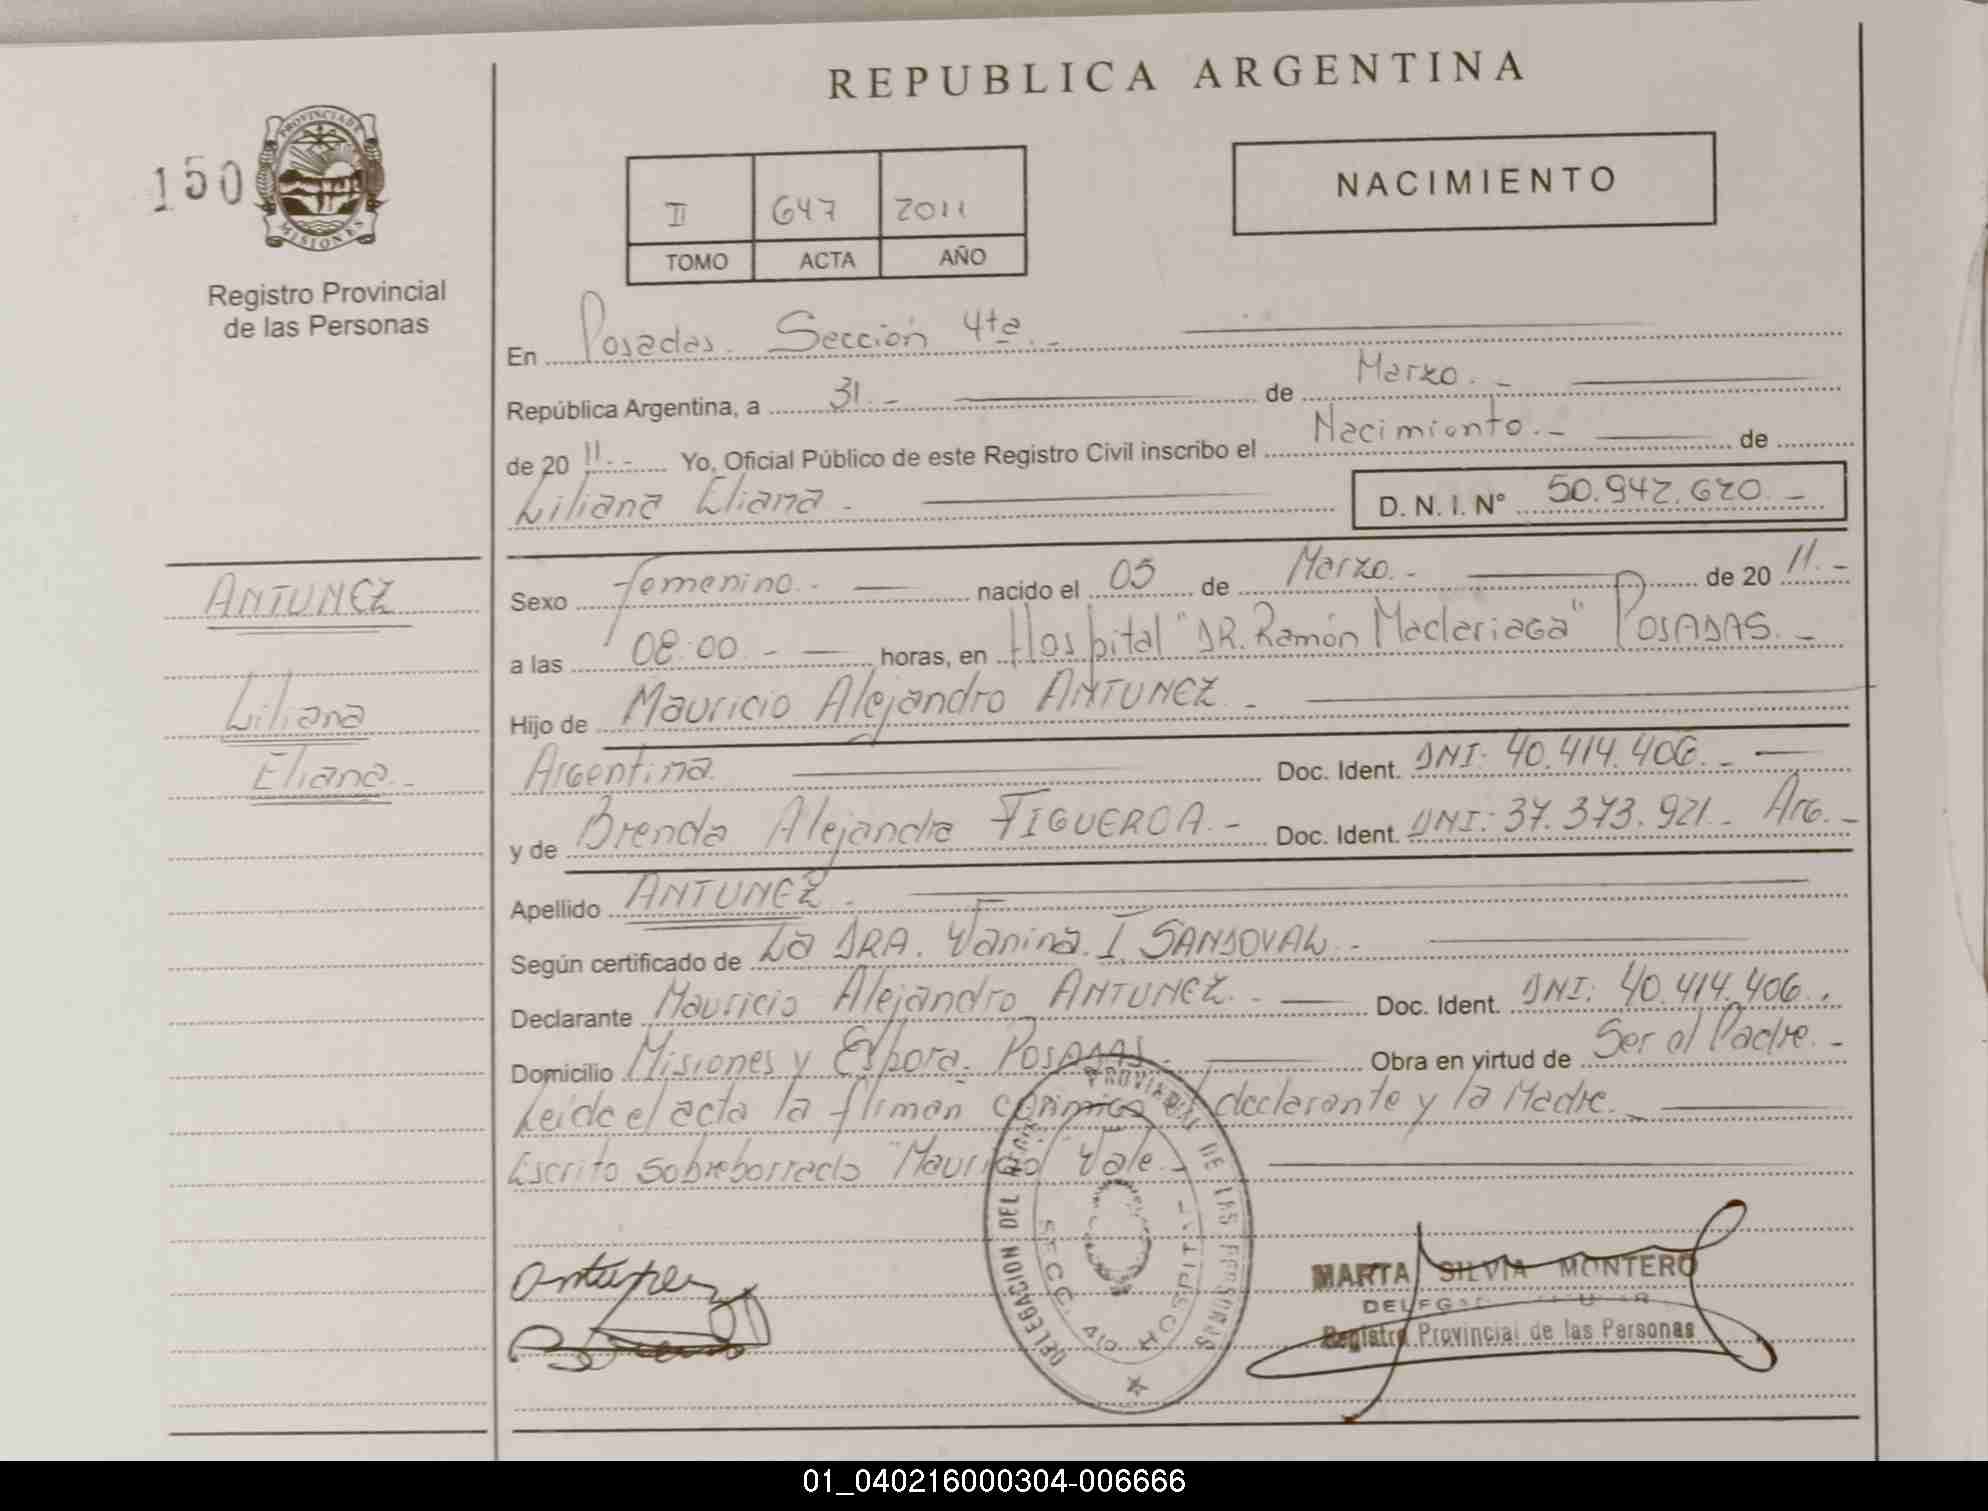 REPUBLICA ARGENTINA
150
PROVINCIA DE
MISIONES
Registro Provincial
de las Personas
II 647 2011
TOMO ACTA AÑO
NACIMIENTO
En Posadas. Sección 4ta.-
República Argentina, a 31.- de Marzo.-
de 20 11.- Yo, Oficial Público de este Registro Civil inscribo el Nacimiento.- de
Liliana Eliana.- D. N. I. N° 50.942.620.-
ANTUNEZ
Liliana
Eliana.-
Sexo femenino.- nacido el 05 de Marzo.- de 20 11.-
a las 08:00.- horas, en Hospital "DR. Ramón Madariaga" POSADAS.-
Hijo de Mauricio Alejandro ANTUNEZ.-
Argentina. Doc. Ident. DNI: 40.414.406.-
y de Brenda Alejandra FIGUEROA.- Doc. Ident. DNI: 37.373.921.- Arg.-
Apellido ANTUNEZ.-
Según certificado de La DRA. Vanina. I. SANDOVAL.-
Declarante Mauricio Alejandro ANTUNEZ.- Doc. Ident. DNI: 40.414.406.,
Domicilio Misiones y Espora. POSADAS.- Obra en virtud de Ser el Padre.-
Leida el acta la firman conmigo el declarante y la Madre.-
Escrito sobreborrado "Mauricio" Vale.-
DELEGACION DEL REGISTRO PROVINCIAL DE LAS PERSONAS
SECC. 4ta HOSPITAL
Antunez
MARTA SILVIA MONTERO
Registro Provincial de las Personas
01_040216000304-006666